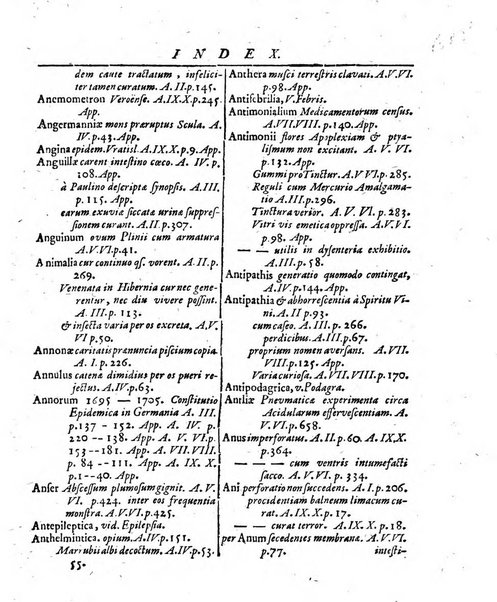 INDEX.
dem caute tractatum, infelici-
ter tamen curatum. A. II. p. 145.
Anemometron Veronse. A. IX. X. p. 245.
App.
Angermanniæ mons præruptus Scula. A.
IV. p. 43. App.
Angina epidem. Vratisl. A. IX. X. p. 9. App.
Anguillæ carent intestino cæco. A. IV. p.
108. App.
à Paulino descriptæ synopsis. A. III.
p. 115. App.
earum exuviæ siccatæ urinæ suppres-
sionem curant. A. II. p. 307.
Anguinum ovum Plinii cum armatura
A. V. VI. p. 41.
Animalia cur continuo qs. vorent. A. II. p.
269.
Venenata in Hibernia cur nec gene-
rentur, nec diu vivere possint.
A. III. p. 113.
& insecta varia per os excreta. A. V.
VI p. 50.
Annonæ caritatis prænuncia piscium copia
A. I. p. 226.
Annulus catenæ dimidius per os pueri re-
jectus. A. IV. p. 63.
Annorum 1695 — 1705. Constitutio
Epidemica in Germania A. III.
p. 137 - 152. App. A. IV. p.
220 -- 138. App. A. V. VI. p.
153 -- 181. App. A. VII. VIII.
p. 84 -- 111. App. A. IX. X.
p. 1 -- 40. App.
Anser Abscessum plumosum gignit. A. V.
VI. p. 424. inter eos frequentia
monstra. A. V. VI. p. 425.
Antepileptica, vid. Epilepsia.
Anthelmintica. opium. A. IV. p. 151.
Marrubii albi decoctum. A. IV. p. 53.
55.
Anthera musci terrestris clavati. A. V. VI.
p. 98. App.
Antifebrilia, V. Febris.
Antimonialium Medicamentorum census.
A. VII. VIII. p. 140. App.
Antimonii flores Apoplexiam & ptya-
lismum non excitant. A. V. VI.
p. 132. App.
Gummi pro Tinctur. A. V. VI. p. 285.
Reguli cum Mercurio Amalgama-
tio A. III. p. 296.
Tinctura verior. A. V. VI. p. 283.
Vitri vis emetica oppressa. A. V. VI.
p. 98. App.
— — — utilis in dysenteria exhibitio.
A. III. p. 58.
Antipathis generatio quomodo contingat,
A. IV. p. 144. App.
Antipathia & abhorrescentia à Spiritu Vi-
ni. A. II p. 93.
cum caseo. A. III. p. 266.
perdicibus. A. III. p. 67.
proprium nomen aversans. A. VII.
VIII. p. 125. App.
Varia curiosa. A. VII. VIII. p. 170.
Antipodagrica, v. Podagra.
Antliæ Pneumaticæ experimenta circa
Acidularum effervescentiam. A. V.
VI. p. 658.
Anus imperforatus. A. II. p. 60. A. IX. X.
p. 364.
— — — cum ventris intumefacti
sacco. A. V. VI. p. 334.
Ani perforatio non succedens. A. I. p. 206.
procidentiam balneum limacum cu-
rat. A. IX. X. p. 17.
— — curat terror. A. IX. X. p. 18.
per Anum secedentes membranæ. A. V. VI.
p. 77.
intesti-